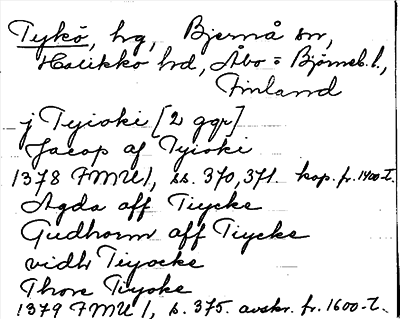 Tykö, hg, Bjernå sn,
Halikko hd, Åbo = Björneb. l.,
Finland
j Tyioki [2 ggr]
Jacop af Tyioki
1378 FMU 1, ss. 370, 371. kop. fr. 1400-t.
Agda aff Tiycke
Gudhorm aff Tiycke
vidh Tiyocke
Thore Tiyoke
1379 FMU 1, s. 375. avskr. fr. 1600-t.